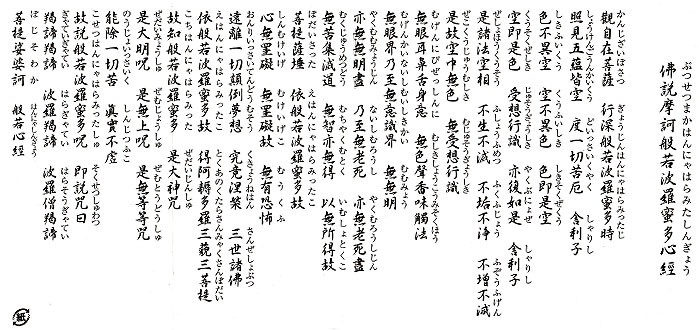 ぶつせつまかはんにゃはらみたしんぎょう
佛說摩訶般若波羅蜜多心經
かんじざいぼさつ ぎょうじんはんにゃはらみったじ
觀自在菩薩 行深般若波羅蜜多時
しょうけんごうんかいくう どいっさいくやく しゃりし
照見五蘊皆空 度一切苦厄 舎利子
しきふいくう くうふいしき しきそくぜくう
色不異空 空不異色 色即是空
くうそくぜしき じゅそうぎょうしき やくぶにょぜ しゃりし
空即是色 受想行識 亦復如是 舎利子
ぜしょほうくうそう ふしょうふめつ ふくふじょう ふぞうふげん
是諸法空相 不生不滅 不垢不浄 不增不減
ぜこくうじゅうむしき むじゅそうぎょうしき
是故空中無色 無受想行識
むげんにびぜっしんに むしきしょうこうみそくほう
無眼耳鼻舌身意 無色聲香味觸法
むげんかいないしむいしきかい むむみょう
無眼界乃至無意識界 無無明
やくむむみょうじん ないしむろうし やくむろうしじん
亦無無明盡 乃至無老死 亦無老死盡
むくじゅめつどう むちやくむとく いむしょとくこ
無苦集滅道 無智亦無得 以無所得故
ぼだいさった えはんにゃはらみったこ
菩提薩埵 依般若波羅蜜多故
しんむけいげ むけいげこ むうくふ
心無罣礙 無罣礙故 無有恐怖
おんりいっさいてんどうむそう くきょうねはん さんぜしょぶつ
遠離一切顛倒夢想 究竟涅槃 三世諸佛
えはんにゃはらみったこ とくあのくたらさんみゃくさんぼだい
依般若波羅蜜多故 得阿耨多羅三藐三菩提
こちはんにゃはらみった ぜだいじんしゅ
故知般若波羅蜜多 是大神咒
ぜだいみょうしゅ ぜむじょうしゅ ぜむとうどうしゅ
是大明呪 是無上呪 是無等等咒
のうじょいっさいく しんじつふこ
能除一切苦 眞實不虚
こせつはんにゃはらみったしゅ そくせつしゅわつ
故說般若波羅蜜多呪 即說咒曰
ぎゃていぎゃてい はらぎゃてい はらそうぎゃてい
羯諦羯諦 波羅羯諦 波羅僧羯諦
ぼじそわか はんにゃしんぎょう
菩提娑婆訶 般若心經
紙